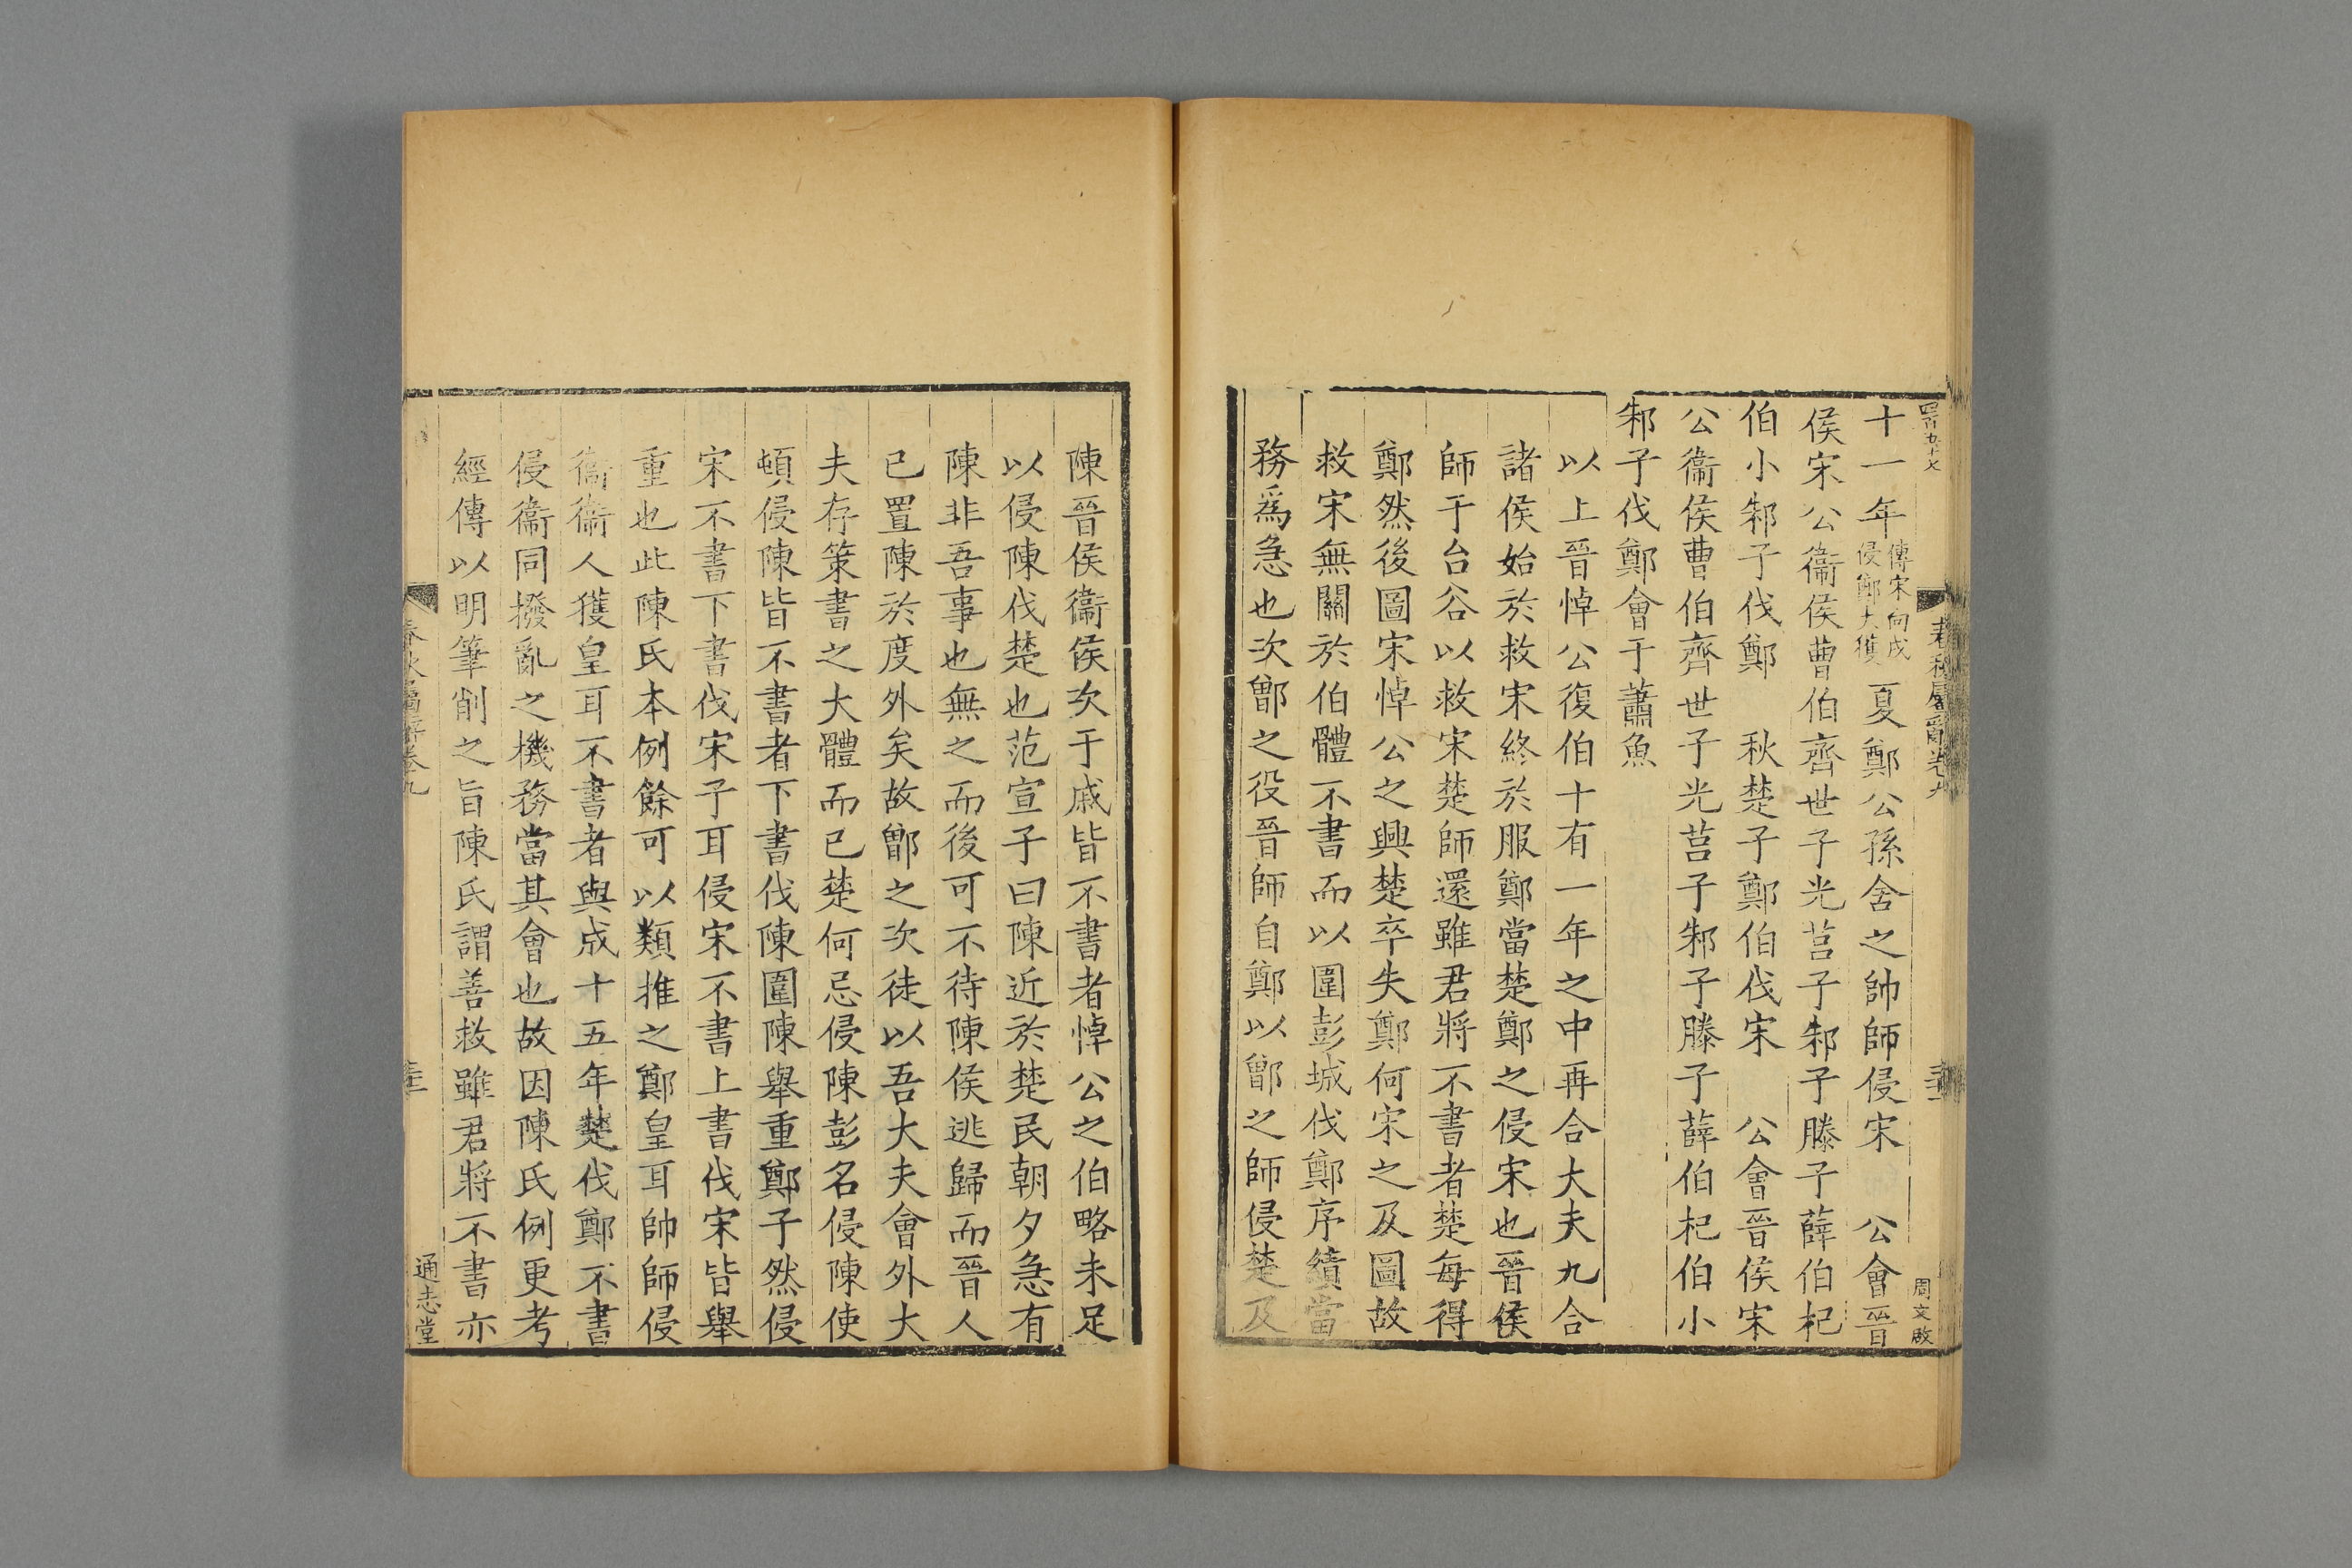 四百五十七
春秋屬辭卷九
三十一
周文啟
十一年傳宋向戌侵鄭大獲夏鄭公孫舍之帥師侵宋　公會晉
侯宋公衞侯曹伯齊世子光莒子邾子滕子薛伯杞
伯小邾子伐鄭　秋楚子鄭伯伐宋　公會晉侯宋
公衞侯曹伯齊世子光莒子邾子滕子薛伯杞伯小
邾子伐鄭會于蕭魚
以上晉悼公復伯十有一年之中再合大夫九合
諸侯始於救宋終於服鄭當楚鄭之侵宋也晉侯
師于台谷以救宋楚師還雖君將不書者楚每得
鄭然後圖宋悼公之興楚卒失鄭何宋之及圖故
救宋無關於伯體不書而以圍彭城伐鄭序績當
務爲急也次鄫之役晉師自鄭以鄫之師侵楚及
陳晉侯衞侯次于戚皆不書者悼公之伯略未足
以侵陳伐楚也范宣子曰陳近於楚民朝夕急有
陳非吾事也無之而後可不待陳侯逃歸而晉人
已置陳於度外矣故鄫之次徒以吾大夫會外大
夫存策書之大體而已楚何忌侵陳彭名侵陳使
頓侵陳皆不書者下書伐陳圍陳舉重鄭子然侵
宋不書下書伐宋子耳侵宋不書上書伐宋皆舉
重也此陳氏本例餘可以類推之鄭皇耳帥師侵
衞衞人獲皇耳不書者與成十五年楚伐鄭不書
侵衞同撥亂之機務當其會也故因陳氏例更考
經傳以明筆削之旨陳氏謂善救雖君將不書亦
春秋屬辭卷九
通志堂